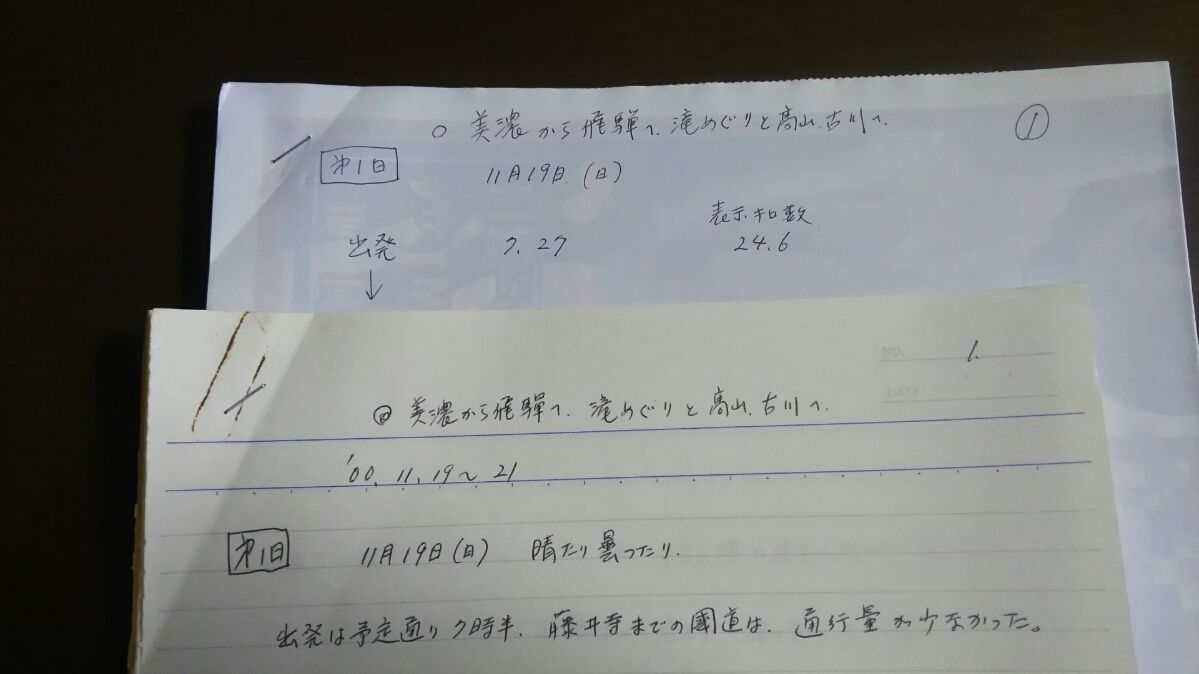 ○ 美濃から飛騨へ、滝めぐりと高山、古川へ、 ①
才1日 11月19日(日)
表示キロ数
出発 7.27 24.6
↓
NO. 1.
DATE
◎ 美濃から飛騨へ、滝めぐりと高山、古川へ、
'00. 11. 19〜21
才1日 11月19日(日) 晴たり曇ったり、
出発は予定通り7時半、藤井寺までの國道は、通行量が少なかった。